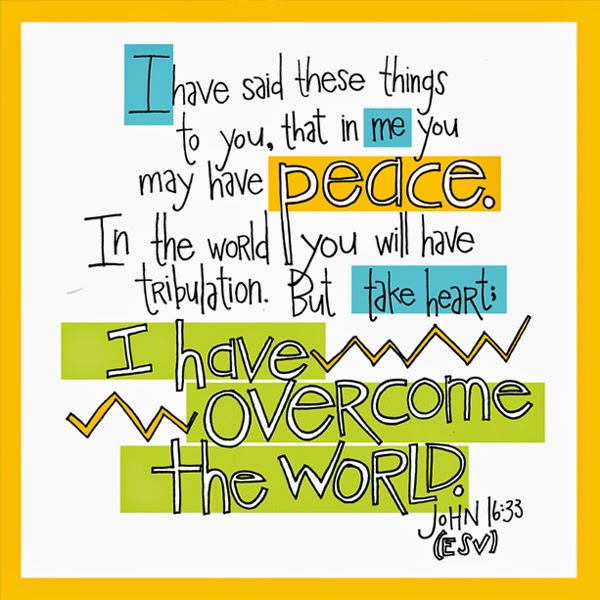 I have said these things
to you, that in me you
may have peace.
In the world you will have
tribulation. But take heart;
I have
overcome
the world.
John 16:33
(ESV)